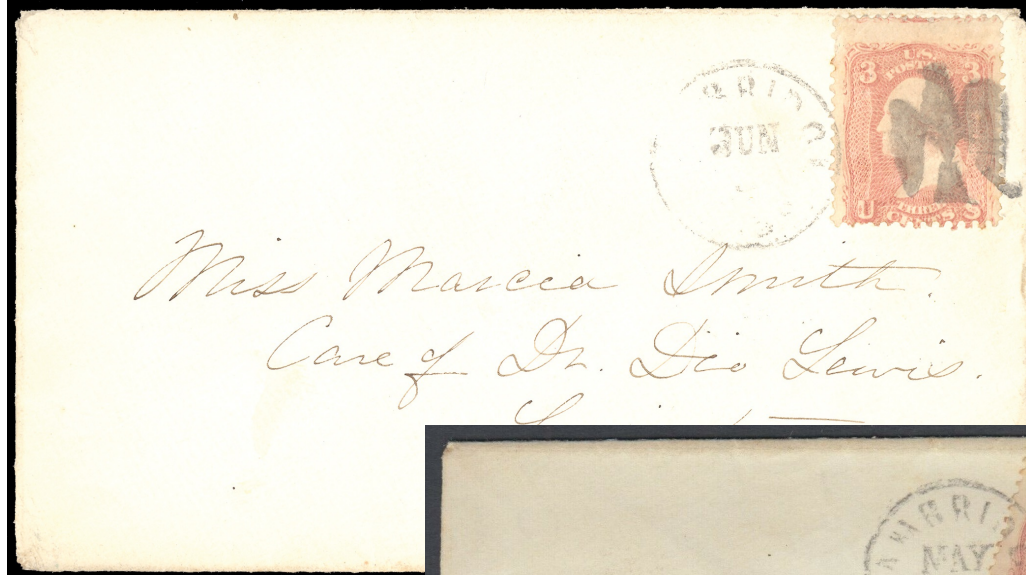 BRIDG
JUN
3 U.S. POSTAGE 3
U THREE CENTS S
Miss Marcia Smith.
Care of Dr. Dio Lewis.
BRID
MAY